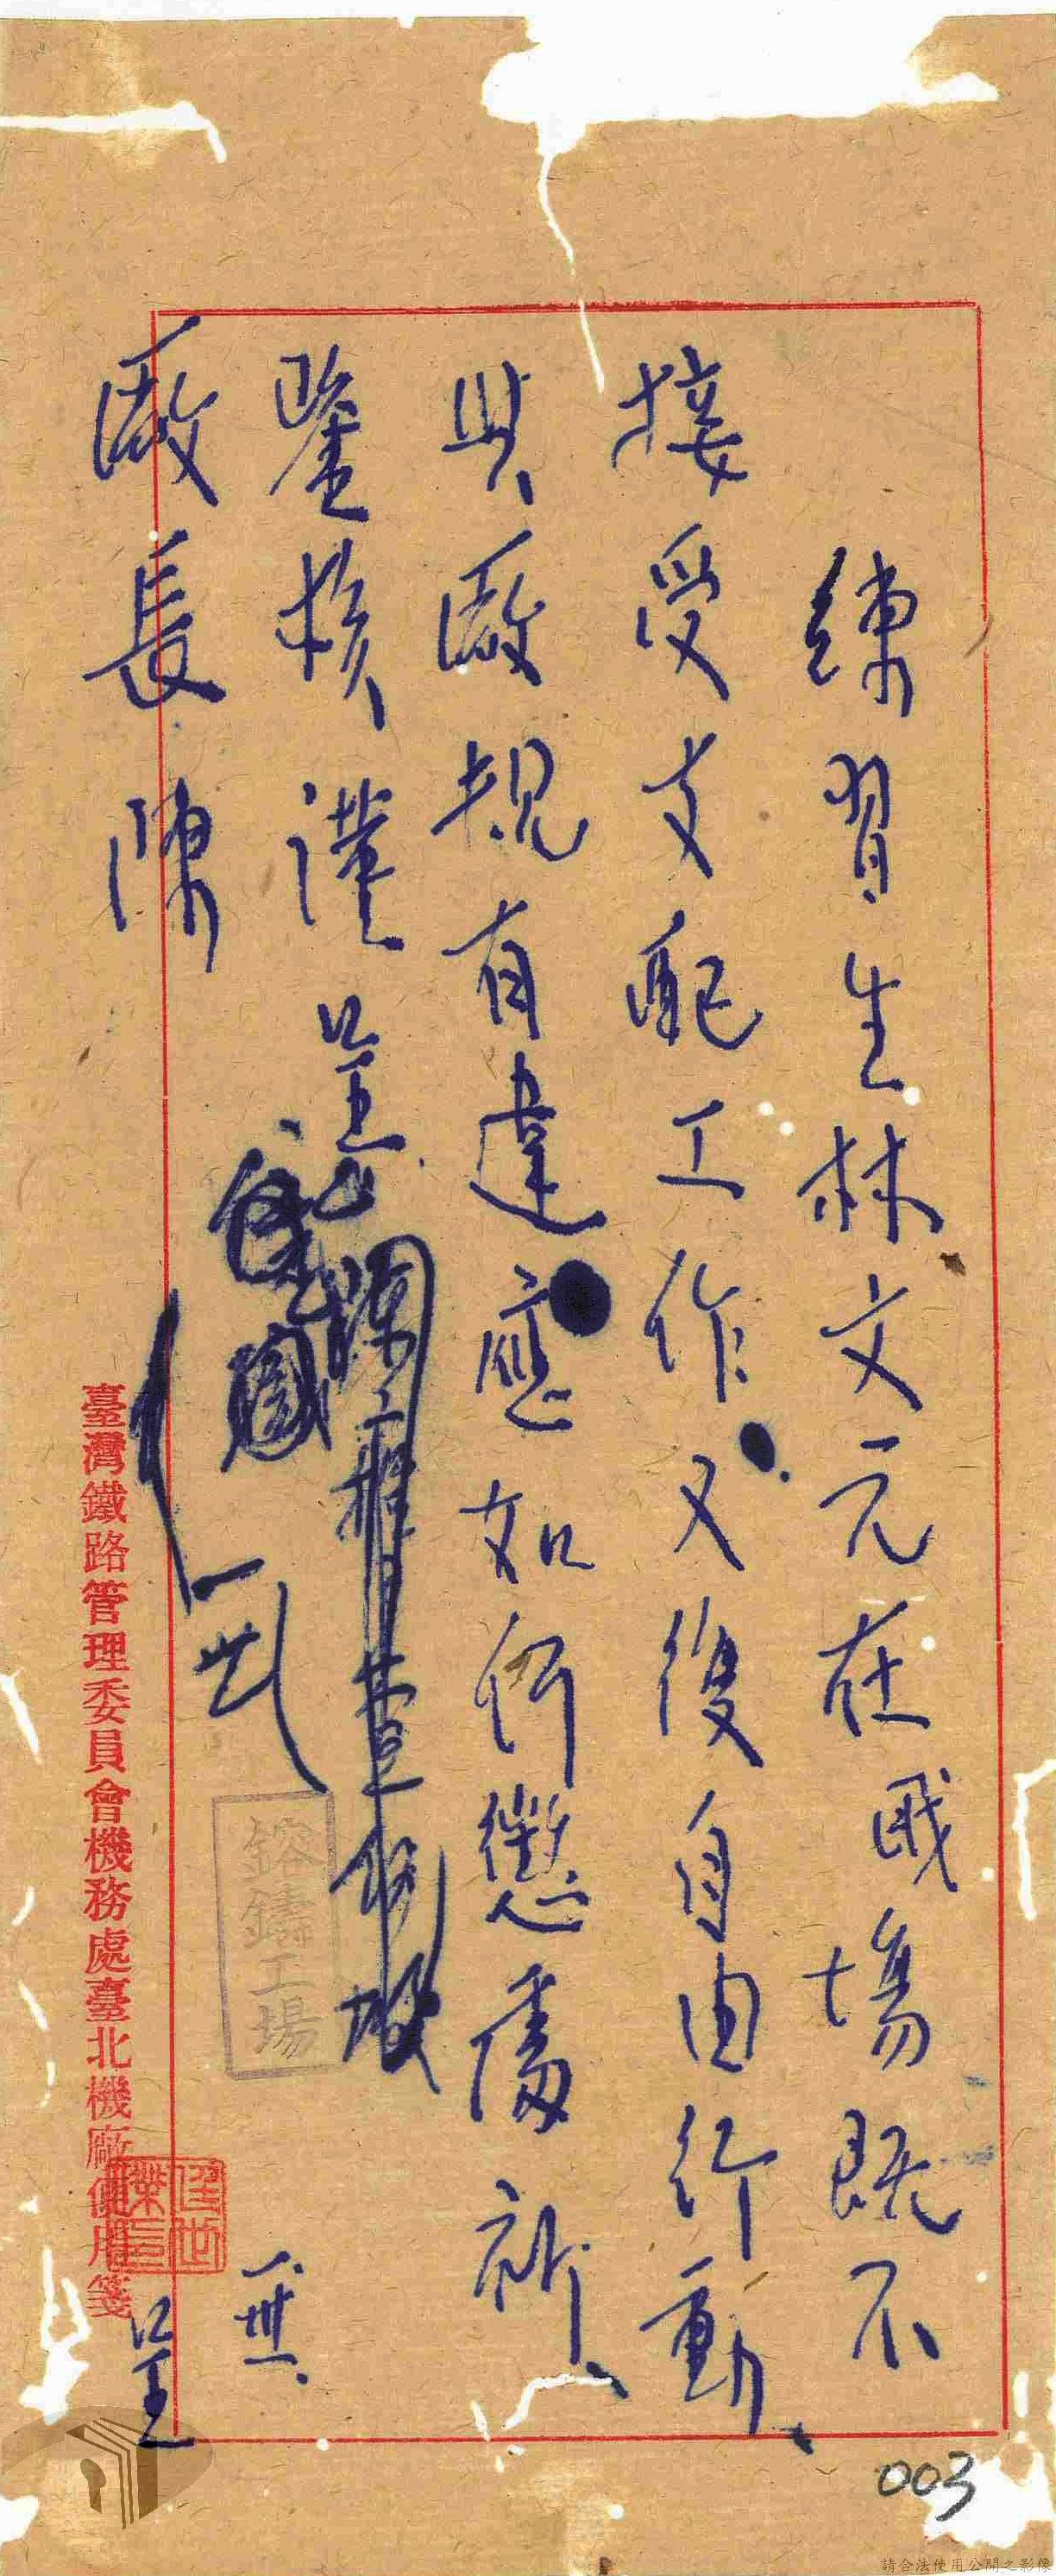 練習生林文元在職場既不
接受支配工作又復自由行動
與廠規有違應如何懲處祈
鑒核謹呈
廠長陳
一卅一
呈
熔鑄工場
臺灣鐵路管理委員會機務處臺北機廠便用箋
003
請合法使用公開之影像